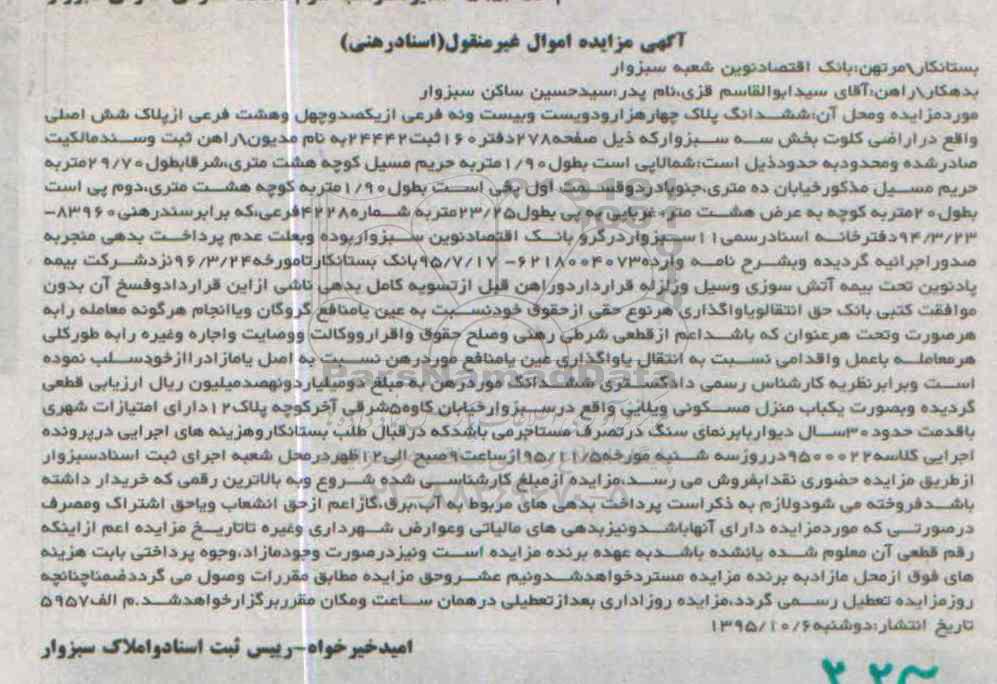 آگهی مزایده اموال غیرمنقول(اسنادرهنی)
بستانکار\مرتهن:بانک اقتصادنوین شعبه سبزوار
بدهکار\راهن:آقای سیدابوالقاسم قزی،نام پدر:سیدحسین ساکن سبزوار
موردمزایده ومحل آن:ششدانگ پلاک چهارهزارودویست وبیست ونه فرعی ازیکصدوچهل وهشت فرعی ازپلاک شش اصلی
واقع دراراضی کلوت بخش سه سبزوارکه ذیل صفحه۲۷۸دفتر۱۶۰ثبت۲۴۴۴۲به نام مدیون\راهن ثبت وسندمالکیت
صادرشده ومحدودبه حدودذیل است:شمالاپی است بطول۱/۹۰متربه حریم مسیل کوچه هشت متری،شرقابطول۲۹/۷۰متربه
حریم مسیل مذکورخیابان ده متری،جنوبادردوقسمت اول پخی است بطول۱/۹۰متربه کوچه هشت متری،دوم پی است
بطول۲۰متربه کوچه به عرض هشت متر، غرباپی به پی بطول۲۳/۲۵متربه شماره۴۲۲۸فرعی،که برابرسندرهنی۸۳۹۶۰-
۹۴/۳/۲۳دفترخانه اسنادرسمی۱۱سبزواردرگرو بانک اقتصادنوین سبزواربوده وبعلت عدم پرداخت بدهی منجربه
صدوراجرائیه گردیده وبشرح نامه وارده۶۲۱۸۰۰۴۰۷۳- ۹۵/۷/۱۷بانک بستانکارتامورخه۹۶/۳/۲۴نزدشرکت بیمه
پادنوین تحت بیمه آتش سوزی وسیل وزلزله قرارداردوراهن قبل ازتسویه کامل بدهی ناشی ازاین قراردادوفسخ آن بدون
موافقت کتبی بانک حق انتقالویاواگذاری هرنوع حقی ازحقوق خودنسبت به عین یامنافع گروگان ویاانجام هرگونه معامله رابه
هرصورت وتحت هرعنوان که باشداعم ازقطعی شرطی رهنی وصلح حقوق واقرارووکالت ووصایت واجاره وغیره رابه طورکلی
هرمعامله باعمل واقدامی نسبت به انتقال یاواگذاری عین یامنافع موردرهن نسبت به اصل یامازادراازخودسلب نموده
است وبرابرنظریه کارشناس رسمی دادگستری ششدانگ موردرهن به مبلغ دومیلیاردونهصدمیلیون ریال ارزیابی قطعی
گردیده وبصورت یکباب منزل مسکونی ویلایی واقع درسبزوارخیابان کاوه۵شرقی آخرکوچه پلاک۱۲دارای امتیازات شهری
باقدمت حدود۳۰سال دیواربابرنمای سنگ درتصرف مستاجرمی باشدکه درقبال طلب بستانکاروهزینه های اجرایی درپرونده
اجرایی کلاسه۹۵۰۰۰۲۲درروزسه شنبه مورخه۹۵/۱۱/۵ازساعت۹صبح الی۱۲ظهردرمحل شعبه اجرای ثبت اسنادسبزوار
ازطریق مزایده حضوری نقدابفروش می رسد،مزایده ازمبلغ کارشناسی شده شروع وبه بالاترین رقمی که خریدار داشته
باشدفروخته می شودولازم به ذکراست پرداخت بدهی های مربوط به آب،برق،گازاعم ازحق انشعاب ویاحق اشتراک ومصرف
درصورتی که موردمزایده دارای آنهاباشدونیزبدهی های مالیاتی وعوارض شهرداری وغیره تاتاریخ مزایده اعم ازاینکه
رقم قطعی آن معلوم شده یانشده باشدبه عهده برنده مزایده است ونیزدرصورت وجودمازاد،وجوه پرداختی بابت هزینه
های فوق ازمحل مازادبه برنده مزایده مستردخواهدشدونیم عشروحق مزایده مطابق مقررات وصول می گرددضمناچنانچه
روزمزایده تعطیل رسمی گردد،مزایده روزاداری بعدازتعطیلی درهمان ساعت ومکان مقرربرگزارخواهدشد.م الف۵۹۵۷
تاریخ انتشار:دوشنبه۱۳۹۵/۱۰/۶
امیدخیرخواه-رییس ثبت اسنادواملاک سبزوار
ParsNamadData